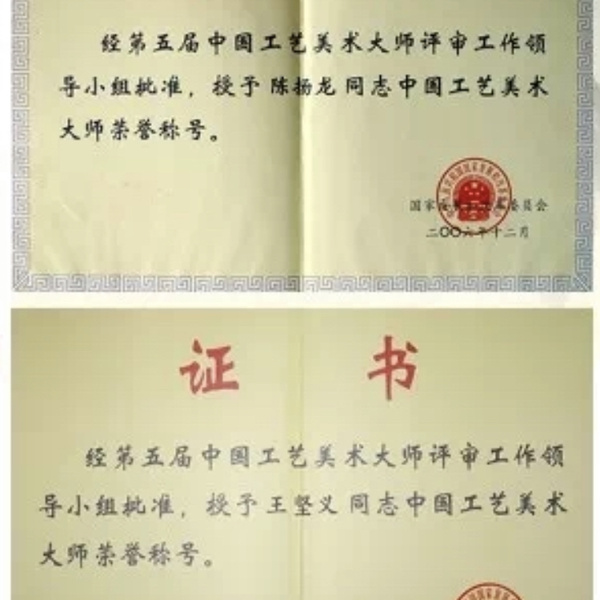 经第五届中国工艺美术大师评审工作领
导小组批准，授予陈扬龙同志中国工艺美术
大师荣誉称号。
二〇〇六年十二月
证书
经第五届中国工艺美术大师评审工作领
导小组批准，授予王坚义同志中国工艺美术
大师荣誉称号。